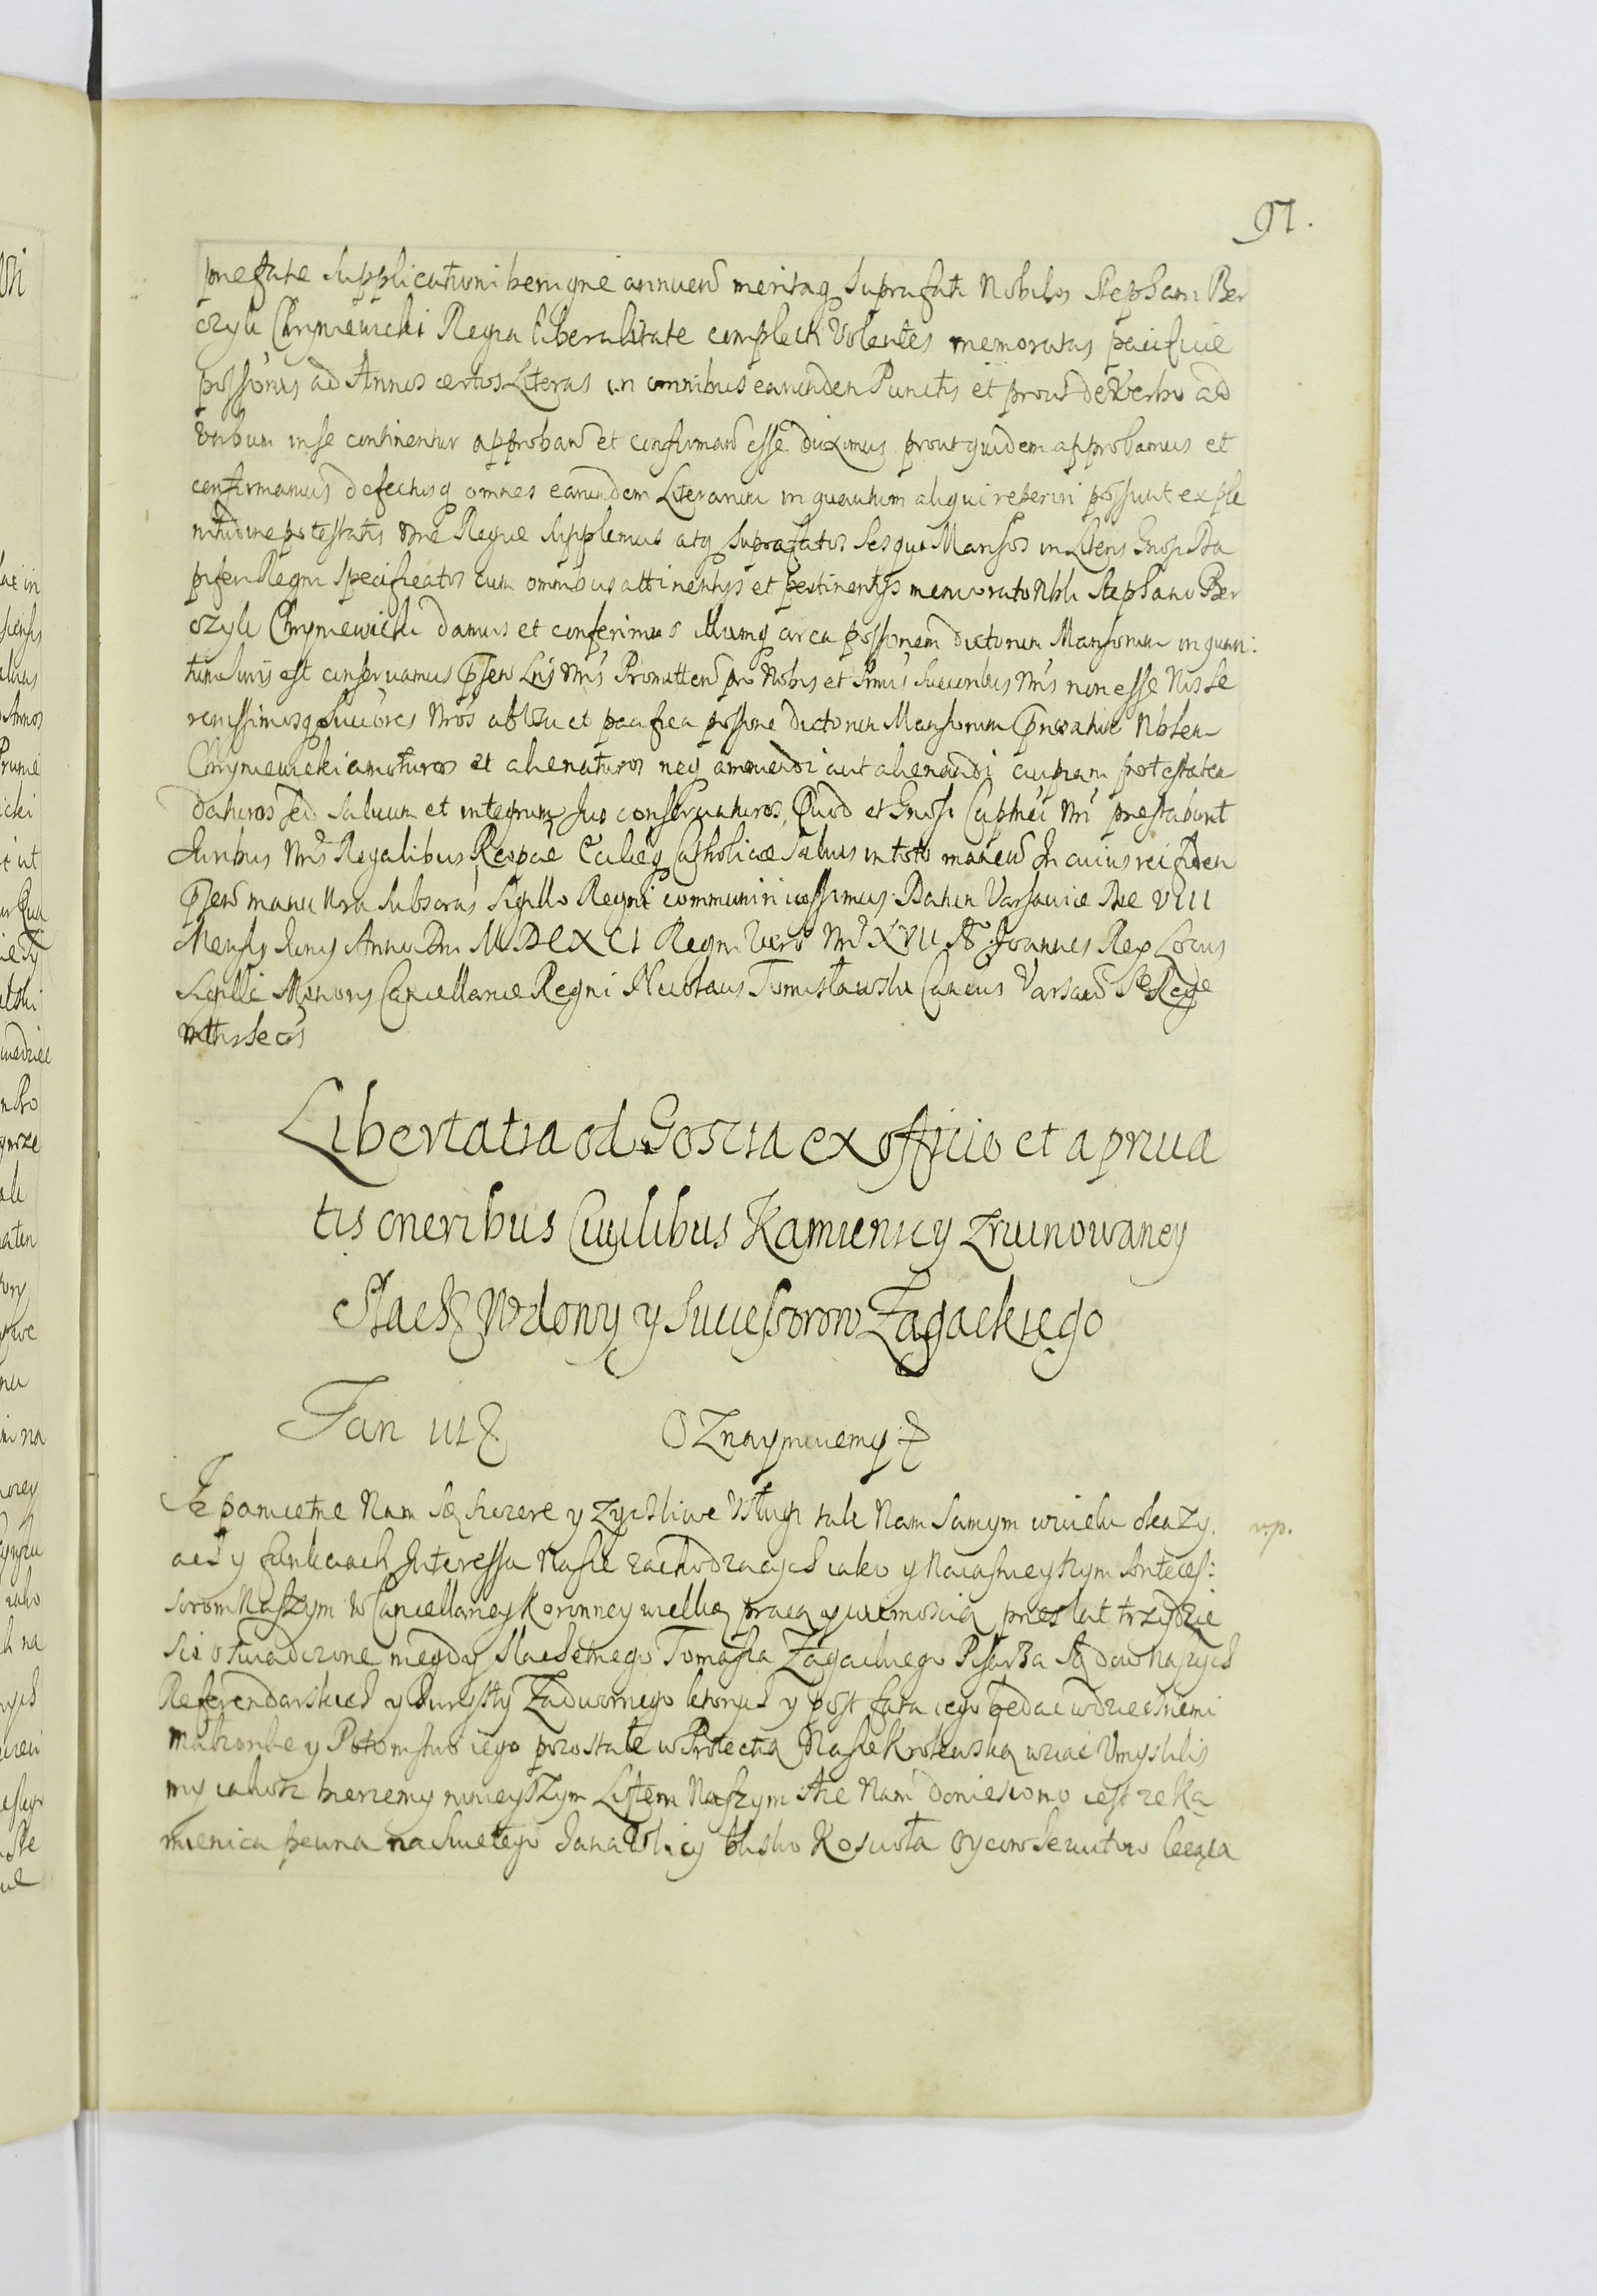 91.
prefatae supplicationi benigne annuen meritaq Suprafati Nobilis Stephani Ber
czyli Chryniewicki Regia liberalitate complecti Volentes memoratas pacificae
possionis ad Annos certos Literas in omnibus earunden Punctis et prout de Verbo ad
Verbum inse continentur approban et confirman esse duximus prout quidem approbamus et
confirmamus defectusq omnes earundem Literarum in quantum aliqui reperiri possunt ex ple
nitudine potestatis nrae Regiae Supplemus atq Suprafatos Sesqui Mansos in Literis Gnosi Da
piferi Regni Specificatos cum omnibus attinentys et pertinentys memorato Nbli Stephano Ber
czyli Chryniewicki damus et conferimus Illumq circa possionem dictorum Mansorum in quan:
tum Iuris est conservamus Psen Lris Nris Promitten pro Nobis et Srmis Succoribus Nris non esse Nos Se
renissimosq Succores Nros ab Usu et pacifica possione dictorum Mansorum Nblem
Chryniewicki amoturos et alienaturos neq amovendi aut alienandi cuipiam potestatem
daturos sed salvum et integrum Ius conservaturos, Quod et Gnosi nri prestabunt
Iuribus Nris Regalibus Reipcae Ecclaeq Catholicae Salvis in toto manen In cuius rei fidem
Psen manu Nra Subscras Sigillo Regni communiri iussimus. Datum Varsaviae Die VIII
Mensis Iunij Anno Dni MDCXCI Regni Vero Nri XVII Ao Joannes Rex Locus
Sigilli Minoris Cancellariae Regni Nicolaus Tomisławski Varsavien SRMttis Secrs
Libertatia od Goscia ex officio et a priva
tis oneribus Civilibus Kamienicy Zruinowaney
Slach Wdowy y Successorow Zagackiego
Jan III Oznaymuiemy
Iz pamietne Nam Są szczere y Zyczliwe Usługi tak Nam Samym wwielu okazy.
ach y funkciach Interessu Nasze zachodzacych iako y Naiasnieyszym Anteces:
sorom Naszym w Cancellaryey Koronney wielką pracą y wiernoscią przes lat trzydzie
sci oswiadczone niegdy Slachetnego Tomasza Zagackiego Pisarza Sądow Naszych
Referendarskich y Iurysty Zadwornego ktorych y post fata iego będąc wdziecsnemi
małzonke y Potomstwo iego pozostałe w Protectią Nasze Krolewską wziać Umyslilis
my iakosz bierzemy ninieyszym Listem Naszym Ale Nam doniesiono iest ze Ka
mienica pewna na Swietego Jana Ulicy blisko Koscioła Oycow leząca
v.p.